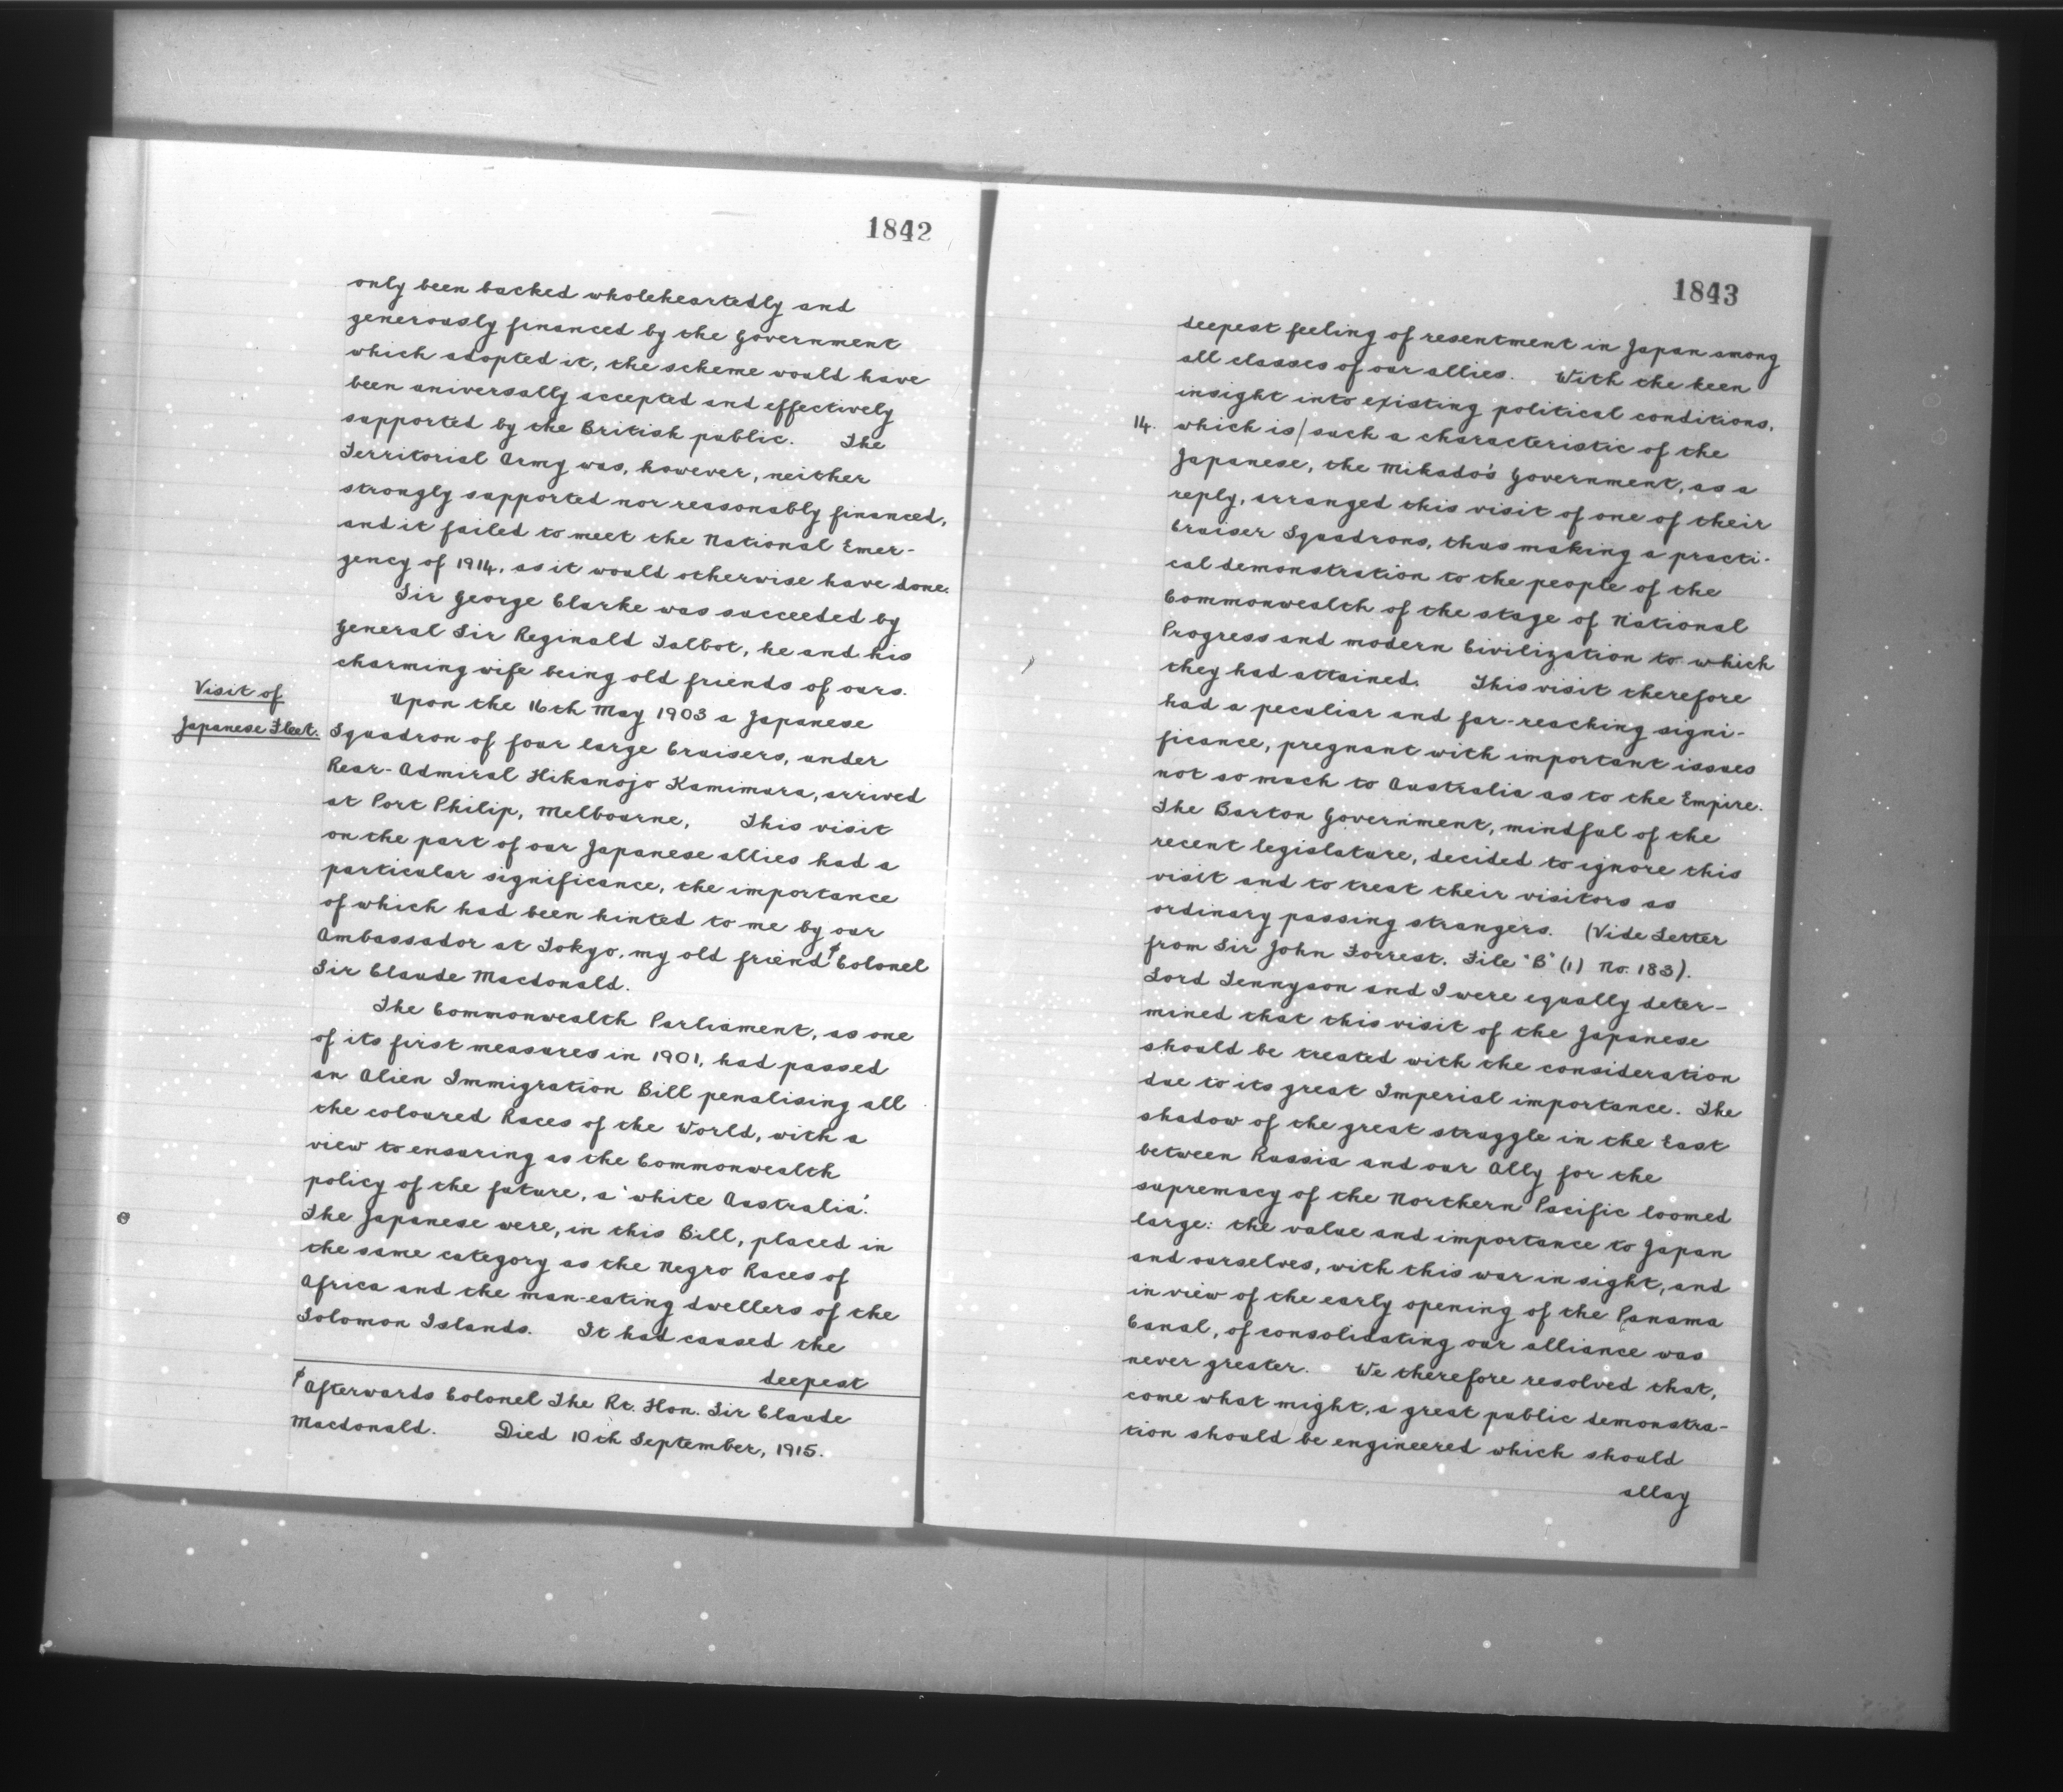 1842
only been backed wholeheartedly and
generously financed by the Government
which adopted it, the scheme would have
been universally accepted and effectively
supported by the British public. The
Territorial Army was, however, neither
strongly supported nor reasonably financed,
and it failed to meet the National Emer-
gency of 1914, as it would otherwise have done.
Sir George Clarke was succeeded by
General Sir Reginald Talbot, he and his
charming wife being old friends of ours.
Visit of
Japanese Fleet.
Upon the 16th May 1903 a Japanese
Squadron of four large Cruisers, under
Rear-Admiral Hikanojo Kamimura, arrived
at Port Philip, Melbourne, This visit
on the part of our Japanese allies had a
particular significance, the importance
of which had been hinted to me by our
Ambassador at Tokyo, my old friend ∮Colonel
Sir Claude Macdonald.
The Commonwealth Parliament, as one
of its first measures in 1901, had passed
an Alien Immigration Bill penalising all
the coloured Races of the World, with a
view to ensuring as the Commonwealth
policy of the future, a 'white Australia'.
The Japanese were, in this Bill, placed in
the same category as the Negro Races of
Africa and the man-eating dwellers of the
Solomon Islands. It had caused the
deepest
∮Afterwards Colonel The Rt. Hon. Sir Claude
Macdonald. Died 10th September, 1915.
1843
deepest feeling of resentment in Japan among
all classes of our allies. With the keen
insight into existing political conditions,
14. which is/such a characteristic of the
Japanese, the Mikado's Government, as a
reply, arranged this visit of one of their
Cruiser Squadrons, thus making a practi-
cal demonstration to the people of the
Commonwealth of the stage of National
Progress and modern Civilization to which
they had attained. This visit therefore
had a peculiar and far-reaching signi-
ficance, pregnant with important issues
not so much to Australia as to the Empire.
The Barton Government, mindful of the
recent legislature, decided to ignore this
visit and to treat their visitors as
ordinary passing strangers. (Vide Letter
from Sir John Forrest. File "B" (1) No. 183).
Lord Tennyson and I were equally deter-
mined that this visit of the Japanese
should be treated with the consideration
due to its great Imperial importance. The
shadow of the great struggle in the East
between Russia and our Ally for the
supremacy of the Northern Pacific loomed
large: the value and importance to Japan
and ourselves, with this war in sight, and
in view of the early opening of the Panama
Canal, of consolidating our alliance was
never greater. We therefore resolved that,
come what might, a great public demonstra-
tion should be engineered which should
allay